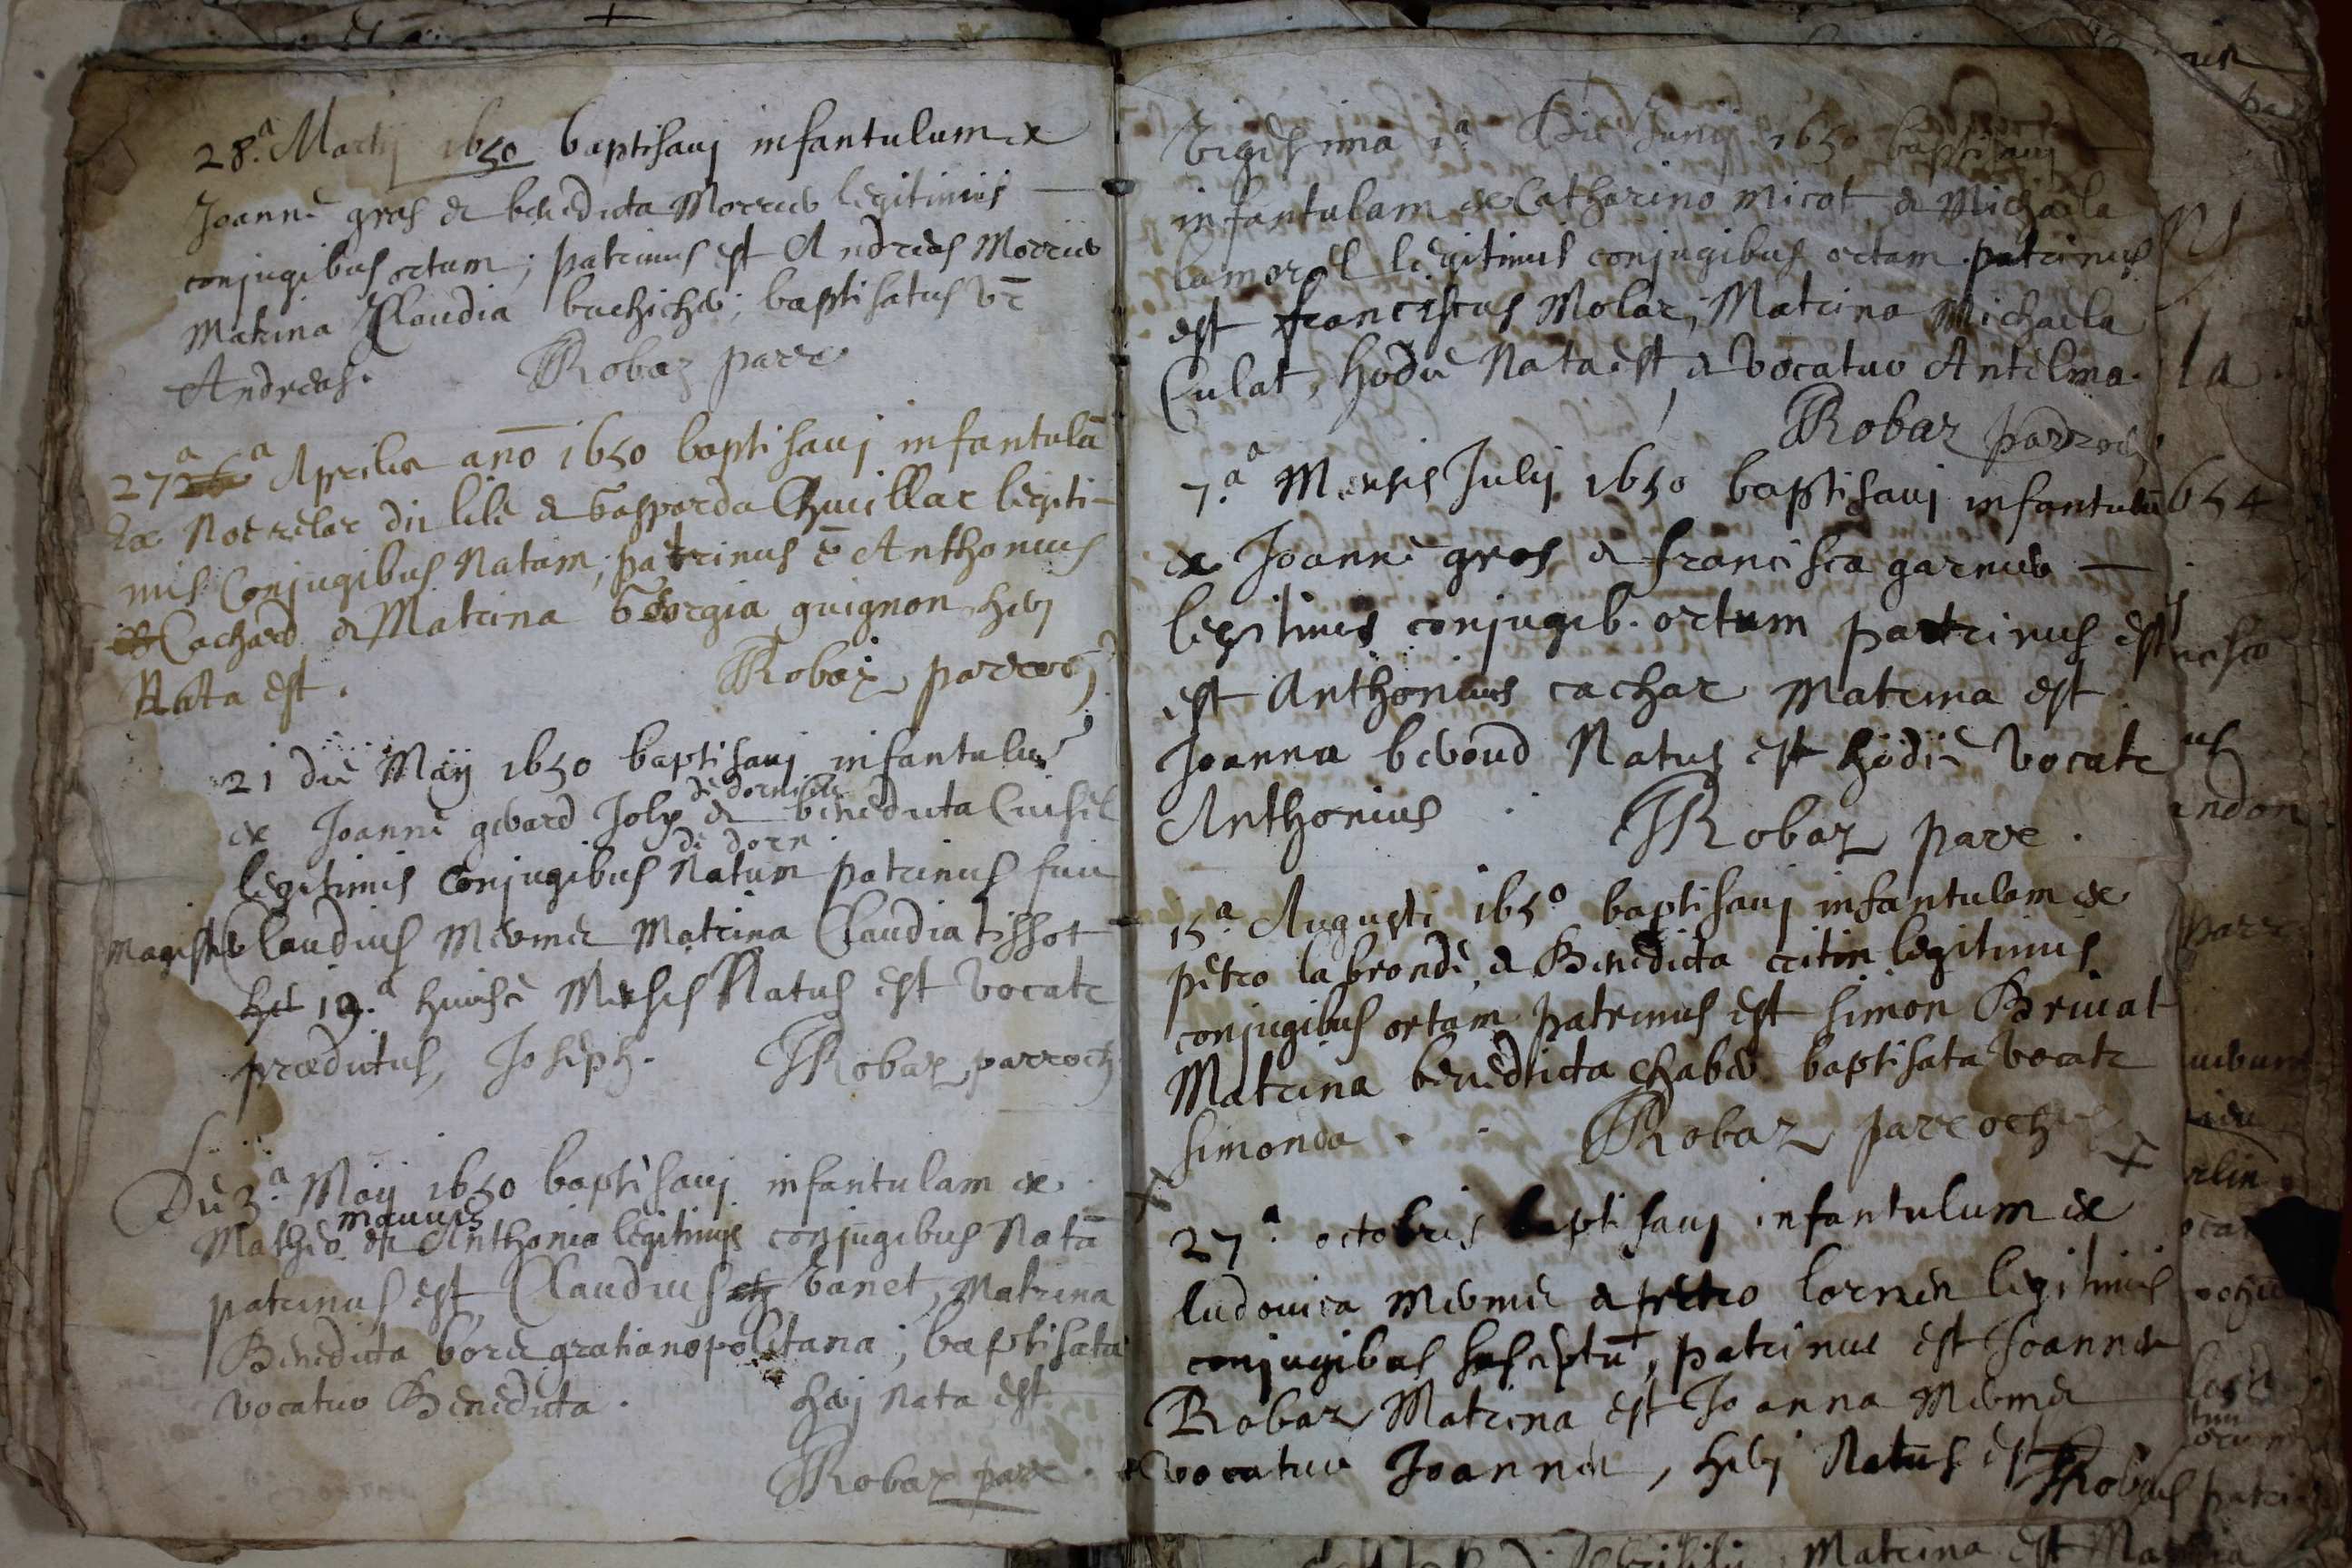 28.a Martij 1650 baptisavj infantulum ex
Joanne gros & benedicta Morrier legitimis
conjugibus ortum; patrinus est Andreas Morrier
Matrina Claudia ; baptisatus vr
Andreas. Robaz parr
27a Aprilis año 1650 baptisavj infantulā
Ex & Gasparda Chuillar legiti-
mis Conjugibus Natam; patrinus ē Anthonius
Cachard & Matrina Georgia guignon herj
Nata est. Robaz parroch
21 die Maij 1650 baptisavj infantulum
de dornieu
ex Joanne gerard Joly & benedicta
de dorn
legitimis Conjugibus Natum patrinus fuit
Magister Claudius Mermet Matrina Claudia tissot
19.a huiusce Mensis Natus est vocatr
prædictus, Joseph. Robaz parroch
Die 3.a Maij 1650 baptisavj infantulam ex
Matheo & Anthonia legitimis conjugibus Natā
patrinus est Claudius vanet, Matrina
Benedicta gratianopolitana; baptisata
vocatur Benedicta. herj nata est
Robaz parr.
Vigesima 1a Die Junij 1650 baptisavj
infantulam ex Catharino micot & Michaela
lamorel legitimis conjugibus ortam. patrinus
est franciscus Molar, Matrina Michaela
Culat, hodie Nata est, & vocatur Antelma.
Robaz parroch
7.a Mensis Julij 1650 baptisavj infantulū
ex Joanne gros & francisca garnier
legitimis conjugib. ortum patrinus est
est Anthonius cachar Matrina est
Joanna beroud Natus est hodie vocatr
Anthonius Robaz parr.
15a Augusti 1650 baptisavj infantulam ex
petro la bronde, & Benedicta legitimis
conjugibus ortam patrinus est simon Brivat
Matrina benedicta baptisata vocatr
Simonda. Robaz parroch
27a octobris baptisavj infantulum ex
ludovica Mermet & petro legitimis
conjugibus susceptū, patrinus est Joannes
Robaz Matrina est Joanna Mermet
& vocatur Joannes, herj Natus est Robaz